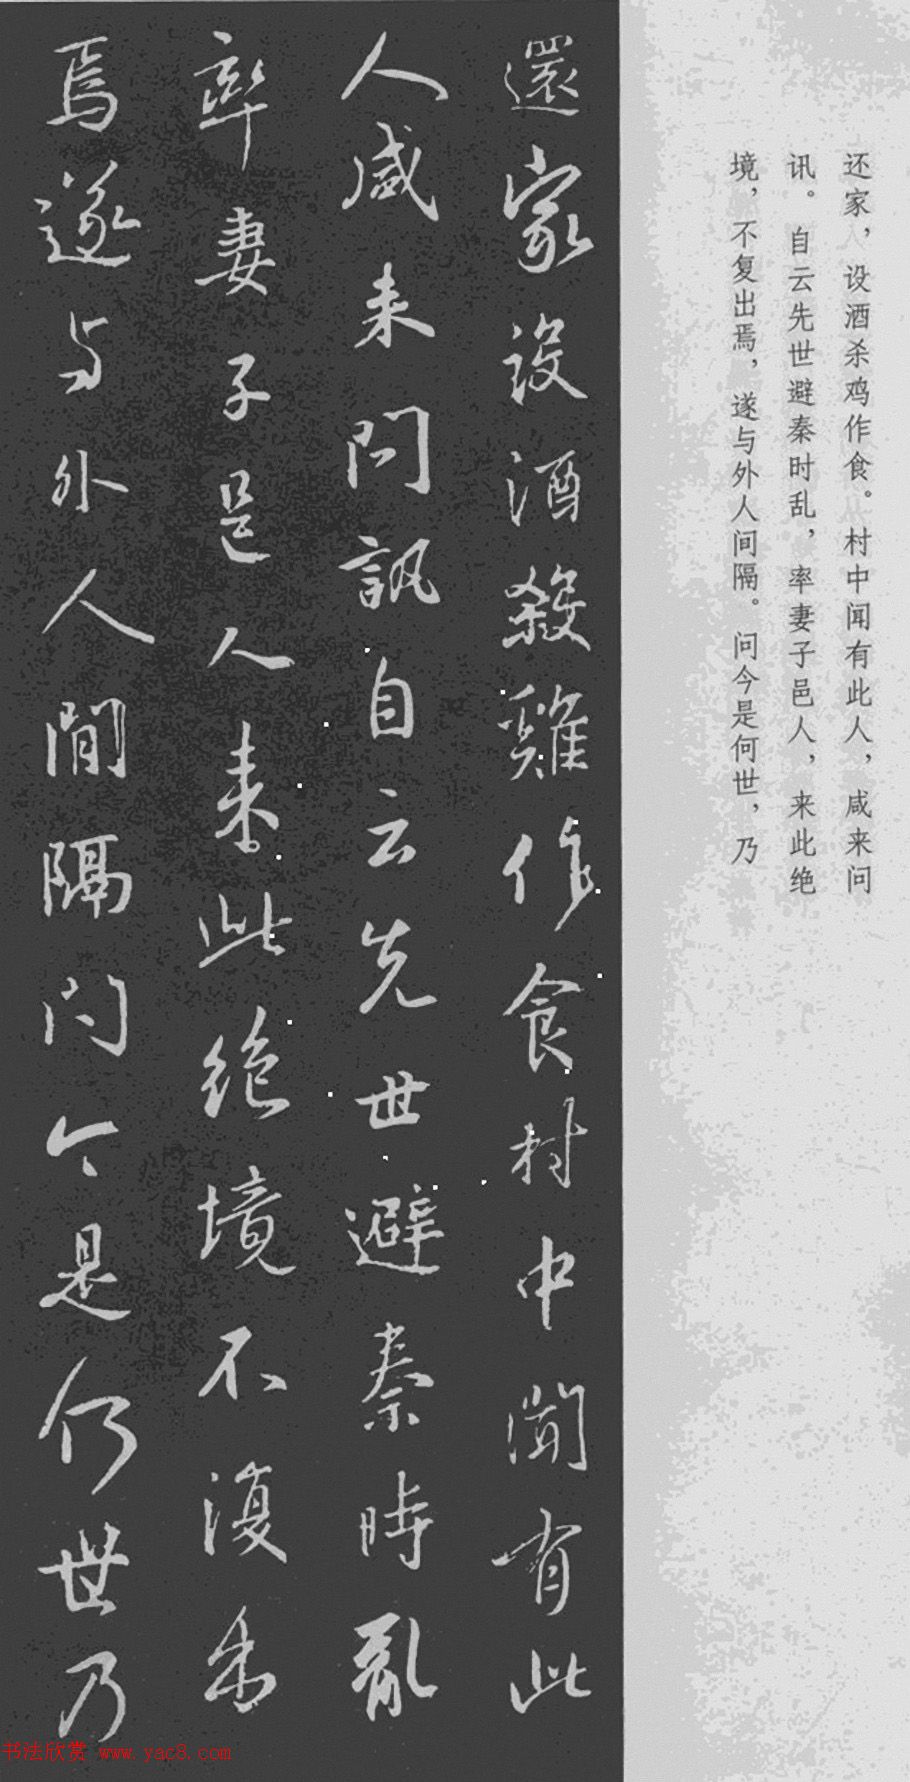 还家，设酒杀鸡作食。村中闻有此人，咸来问
讯。自云先世避秦时乱，率妻子邑人，来此绝
境，不复出焉，遂与外人间隔。问今是何世，乃
還家設酒殺雞作食村中聞有此
人咸来問訊自云先世避秦時亂
率妻子邑人来此絶境不復出
焉遂与外人間隔問今是何世乃
书法欣赏 www.yac8.com